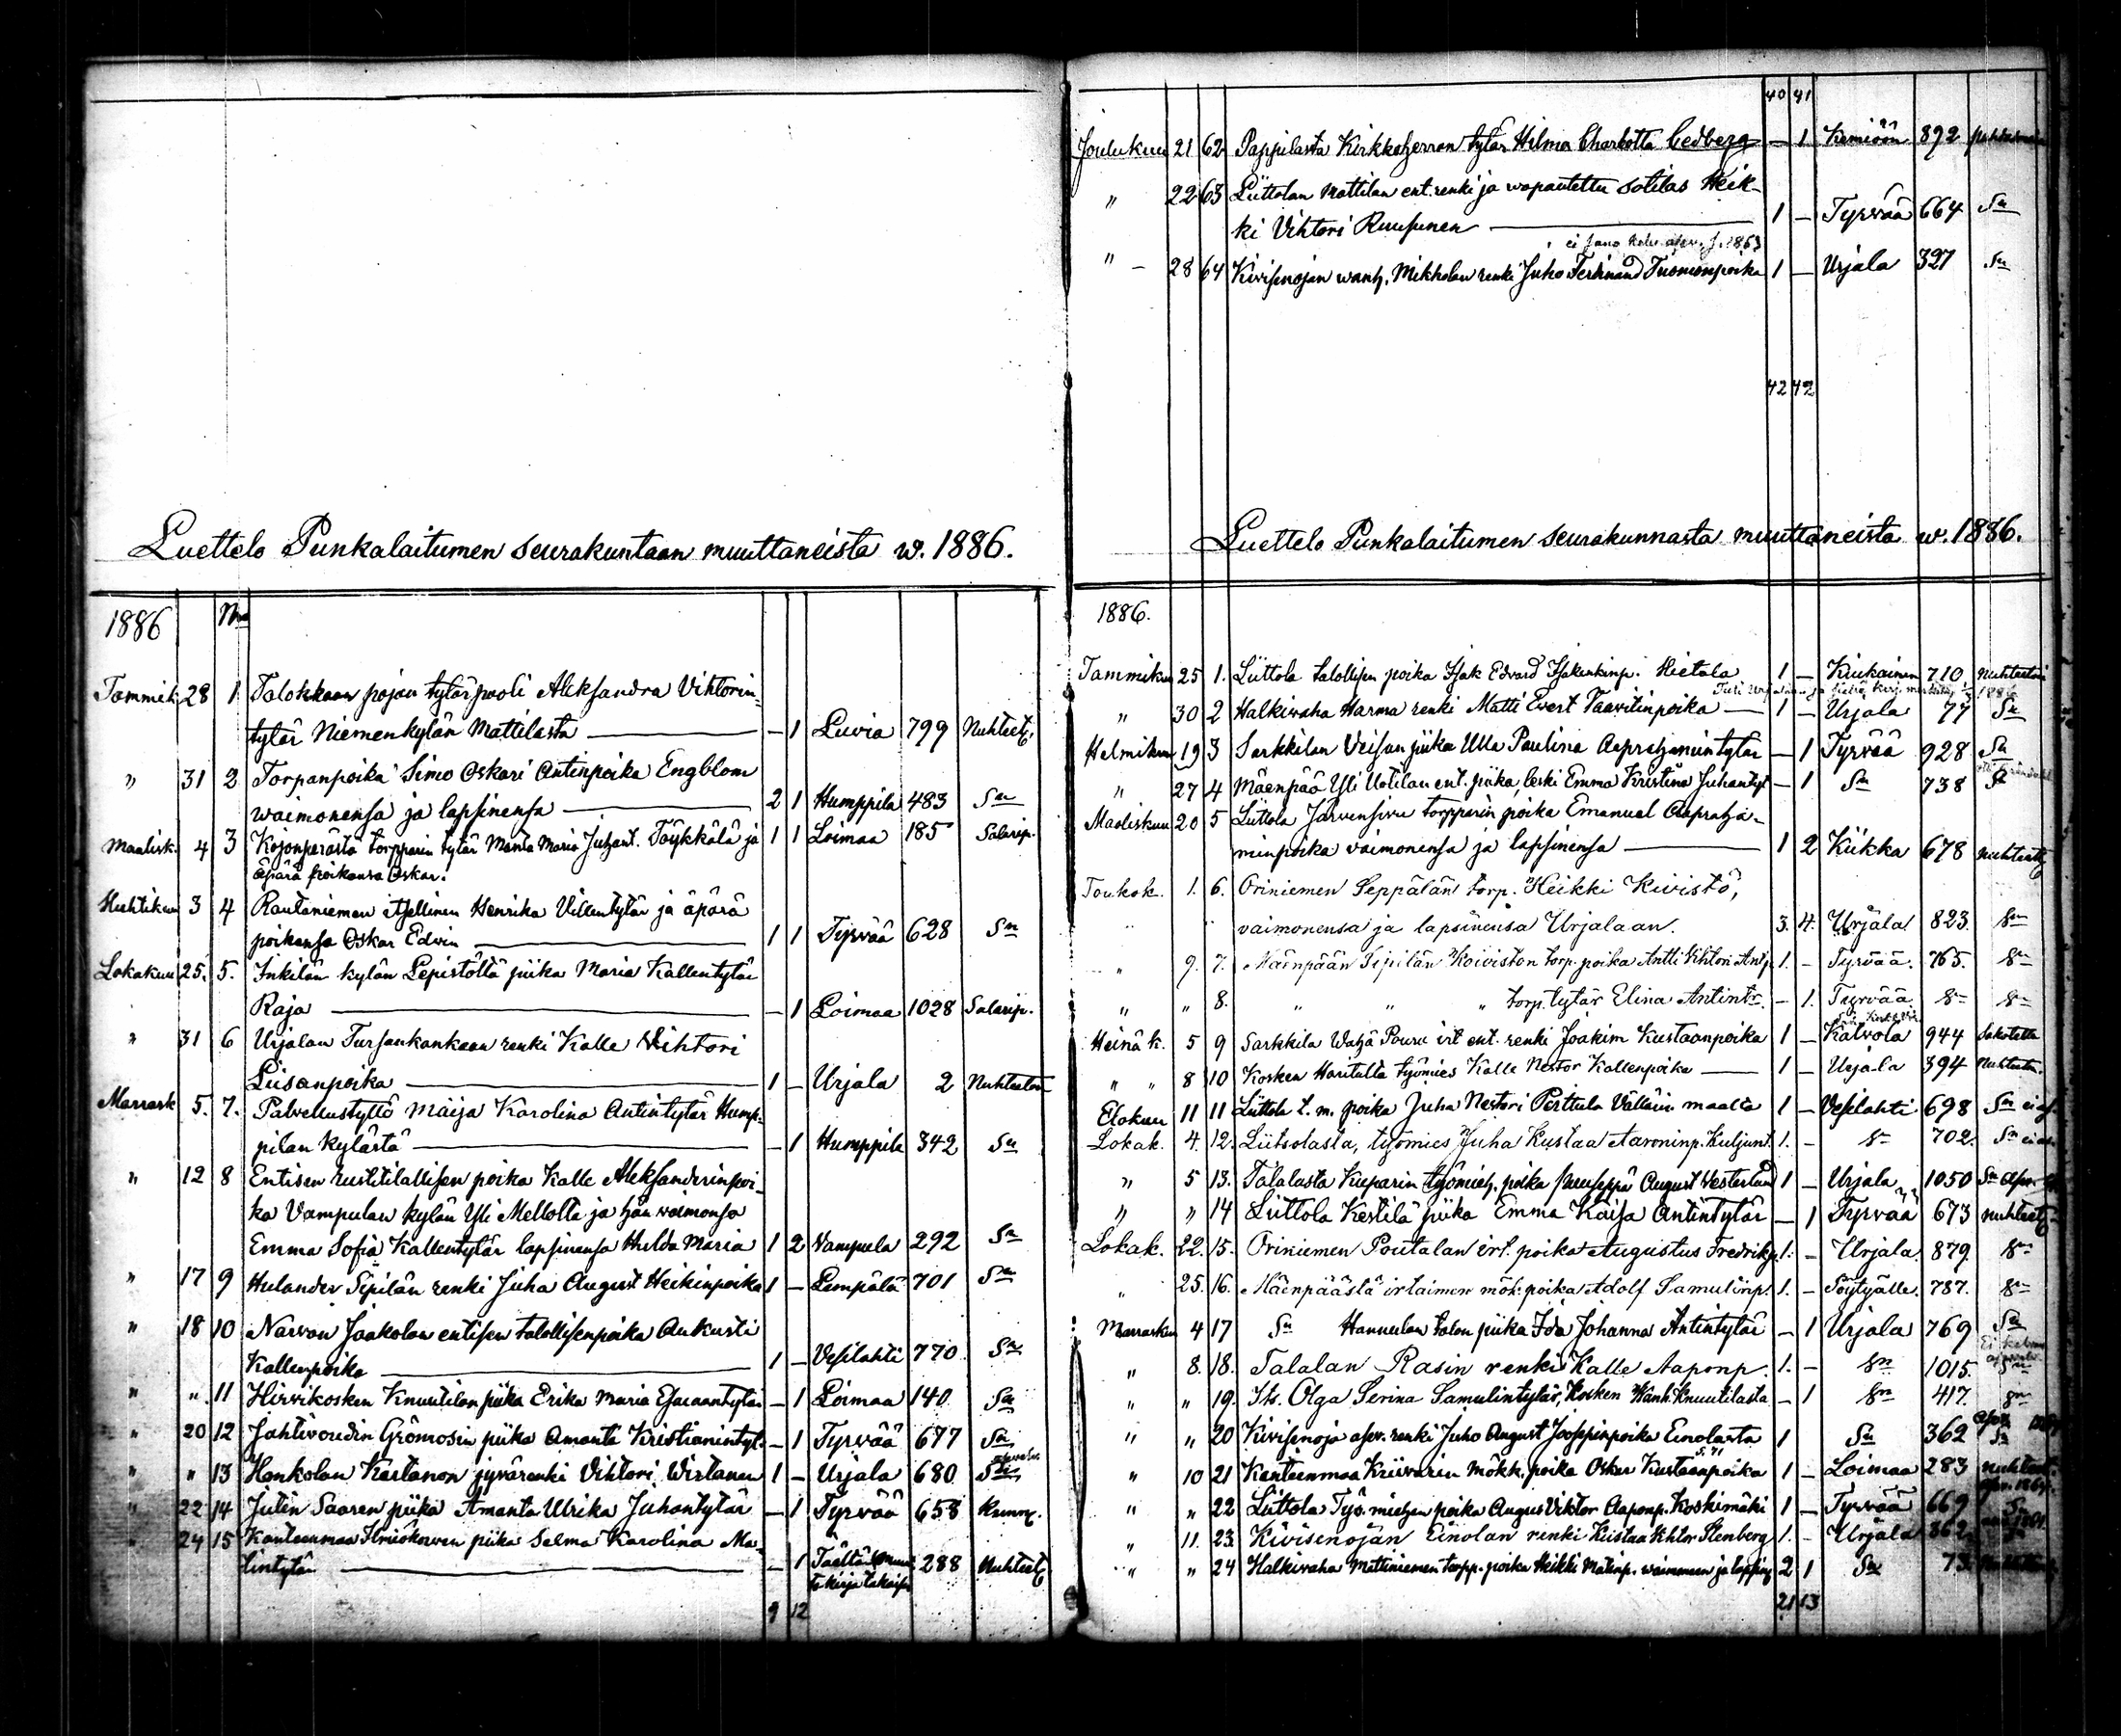 Luettelo Punkalaitumen seurakuntaan muuttaneista w. 1886.
1886 Nro
Tammik. 28 1 Talokkaan pojan tytärpuoli Aleksandra Vihtorin-
tytär Niemenkylän Mattilasta — 1 Luvia 799 Nuhteet.
" 31 2 Torpanpoika Simo Oskari Antinpoika Engblom
waimonensa ja lapsinensa 2 1 Humppila 483 Sn
Maalisk. 4 3 Kojonperästä torpparin tytär Manta Maria Juhant. Töykkälä ja 1 1 Loimaa 185 Salavip.
äpärä poikansa Oskar.
Huhtikuu 3 4 Rautaniemen itsellinen Henrika Villentytär ja äpärä
poikansa Oskar Edvin 1 1 Tyrvää 628 Sn
Lokakuu 25. 5. Inkilän kylän Lepistöltä piika Maria Kallentytär
Raja — 1 Loimaa 1028 Salavip.
" 31 6 Urjalan Tursankankaan renki Kalle Vihtori
Liisanpoika 1 — Urjala 2 Nuhteeton
Marrask 5. 7. Palvellustyttö Maija Karolina Antintytär Hump-
pilan kylästä — 1 Humppila 342 Sn
" 12 8 Entisen rustitilallisen poika Kalle Aleksanderinpoi-
ka Vampulan kylän Yli Mellolta ja hän waimonsa
Emma Sofia Kallentytär lapsinensa Hulda Maria 1 2 Vampula 292 Sn
" 17 9 Hulander Sipilän renki Juha August Heikinpoika 1 — Lempälä 701 Sn
" 18 10 Narvan Jaakolan entisen talollisenpoika Aukusti
Kallenpoika 1 — Vesilahti 770 Sn
" " 11 Hirvikosken Knuutilan piika Erika Maria Esaiaantytär — 1 Loimaa 140 Sn
" 20 12 Jahtivoudin Grönrosin piika Amanta Kristianintyt. — 1 Tyrvää 677 Sn
" " 13 Honkolan Kertanon jyvärenki Vihtori Wirtanen 1 — Urjala 680 Sn
" 22 14 Jutin Saaren piika Amanta Ulrika Juhantytär — 1 Tyrvää 653
" 24 15 Kanteenmaa piika Selma Karolina Ma-
tintytär — 1 Täältä 288 Nuhteet.
kirja takaisin
9 12
40 41
Joulukuu 21 62 Pappilasta Kirkkoherran tytär Hilma Charlotta Cedberg — 1 Kemiöön 892
" 22 63 Liittolan Mattilan ent. renki ja wapautettu sotilas Heik-
ki Vihtori Ruusunen 1 — Tyrvää 664 Sn
" 28 64 Kivisenojan wanh. Mikkolan renki Juho Ferdinand Tuomonpoika 1 — Urjala 327 Sn
42 42
Luettelo Punkalaitumen seurakunnasta muuttaneista w. 1886.
1886.
Tammikuu 25 1. Liittola talollisen poika Isak Edvard Isakinkinp. Hietala 1 — Kiukainen 710
" 30 2 Halkivaha Harma renki Matti Evert Taavitinpoika 1 — Urjala 77 Sn
Helmikuu 19 3 Sarkkilan piika Ulla Paulina Aaprahamintytär — 1 Tyrvää 928 Sn
" 27 4 Mäenpää Yli Uotilan ent. piika, leski Emma Kristiina Juhantyt — 1 Sn 738 Sn
Maaliskuu 20 5 Liittola Järvensivu torpparin poika Emanuel Aapraha-
minpoika vaimonensa ja lapsinensa 1 2 Kiikka 678
Toukok. 1. 6. Oriniemen Seppälän torp. Heikki Kivistö,
vaimonensa ja lapsinensa Urjalaan. 3. 4. Urjala 823. Sn
" 9. 7. Mäenpään Sipilän Koiviston torp. poika Antti Vihtori Antp. 1. — Tyrvää. 765. Sn
" " 8. " " " torp. tytär Elina Antintr. — 1. Tyrvää Sn Sn
Heinäk. 5 9 Sarkkila Wähä Pouru irt. ent. renki Joakim Kustaanpoika 1 — Kalvola 944
" " 8 10 Kosken Haritulta työmies Kalle Nestor Kallenpoika 1 — Urjala 394 Nuhteeton
Elokuu 11 11 Liittola t. m. poika Juha Nestori Perttula Vällärin maalta 1 — Vesilahti 698 Sn
Lokak. 4. 12. Liitsolasta, työmies Juha Kustaa Aaroninp. Kuljunt. 1. — Sn 702. Sn
" 5 13. Talalasta Kuparin työmieh. poika August Vesterlund 1 — Urjala 1050 Sn
" " 14 Liittola Kestilä piika Emma Kaisa Antintytär — 1 Tyrvää 673
Lokak. 22. 15. Oriniemen Poutalan irt. poika Augustus Fredrikp. 1. — Urjala. 879. Sn
" 25. 16. Mäenpäästä irtaimen mök. poika Adolf Samulinp. 1. — Pöytyälle. 787. Sn
Marraskuu 4 17 Sn Hannulan talon piika Ida Johanna Antintytär — 1 Urjala 769 Sn
" 8. 18. Talalan Rasin renki Kalle Aaponp. 1. — Sn 1015.
" " 19. Its. Olga Serina Samulintytär, Kosken Wanh. Knuutilasta — 1 Sn 417. Sn
" " 20 Kivisenoja asev. renki Juho August Jooseppinpoika Einolasta 1 Sn 362 Sn
" 10 21 Kanteenmaa Kriivarin mökk. poika Oskar Kustaanpoika 1 — Loimaa 283
" " 22 Liittola Työ. miehen poika August Viktor Aaponp. Koskimäki 1 — Tyrvää 669
" 11. 23. Kivisenojan Einolan renki Kustaa Vihtor Stenberg 1. — Urjala 862
" " 24 Halkivaha Mattiniemen torpp. poika Heikki Matinp. waimoneen ja lapsing 2 1 Sn 73
21 13